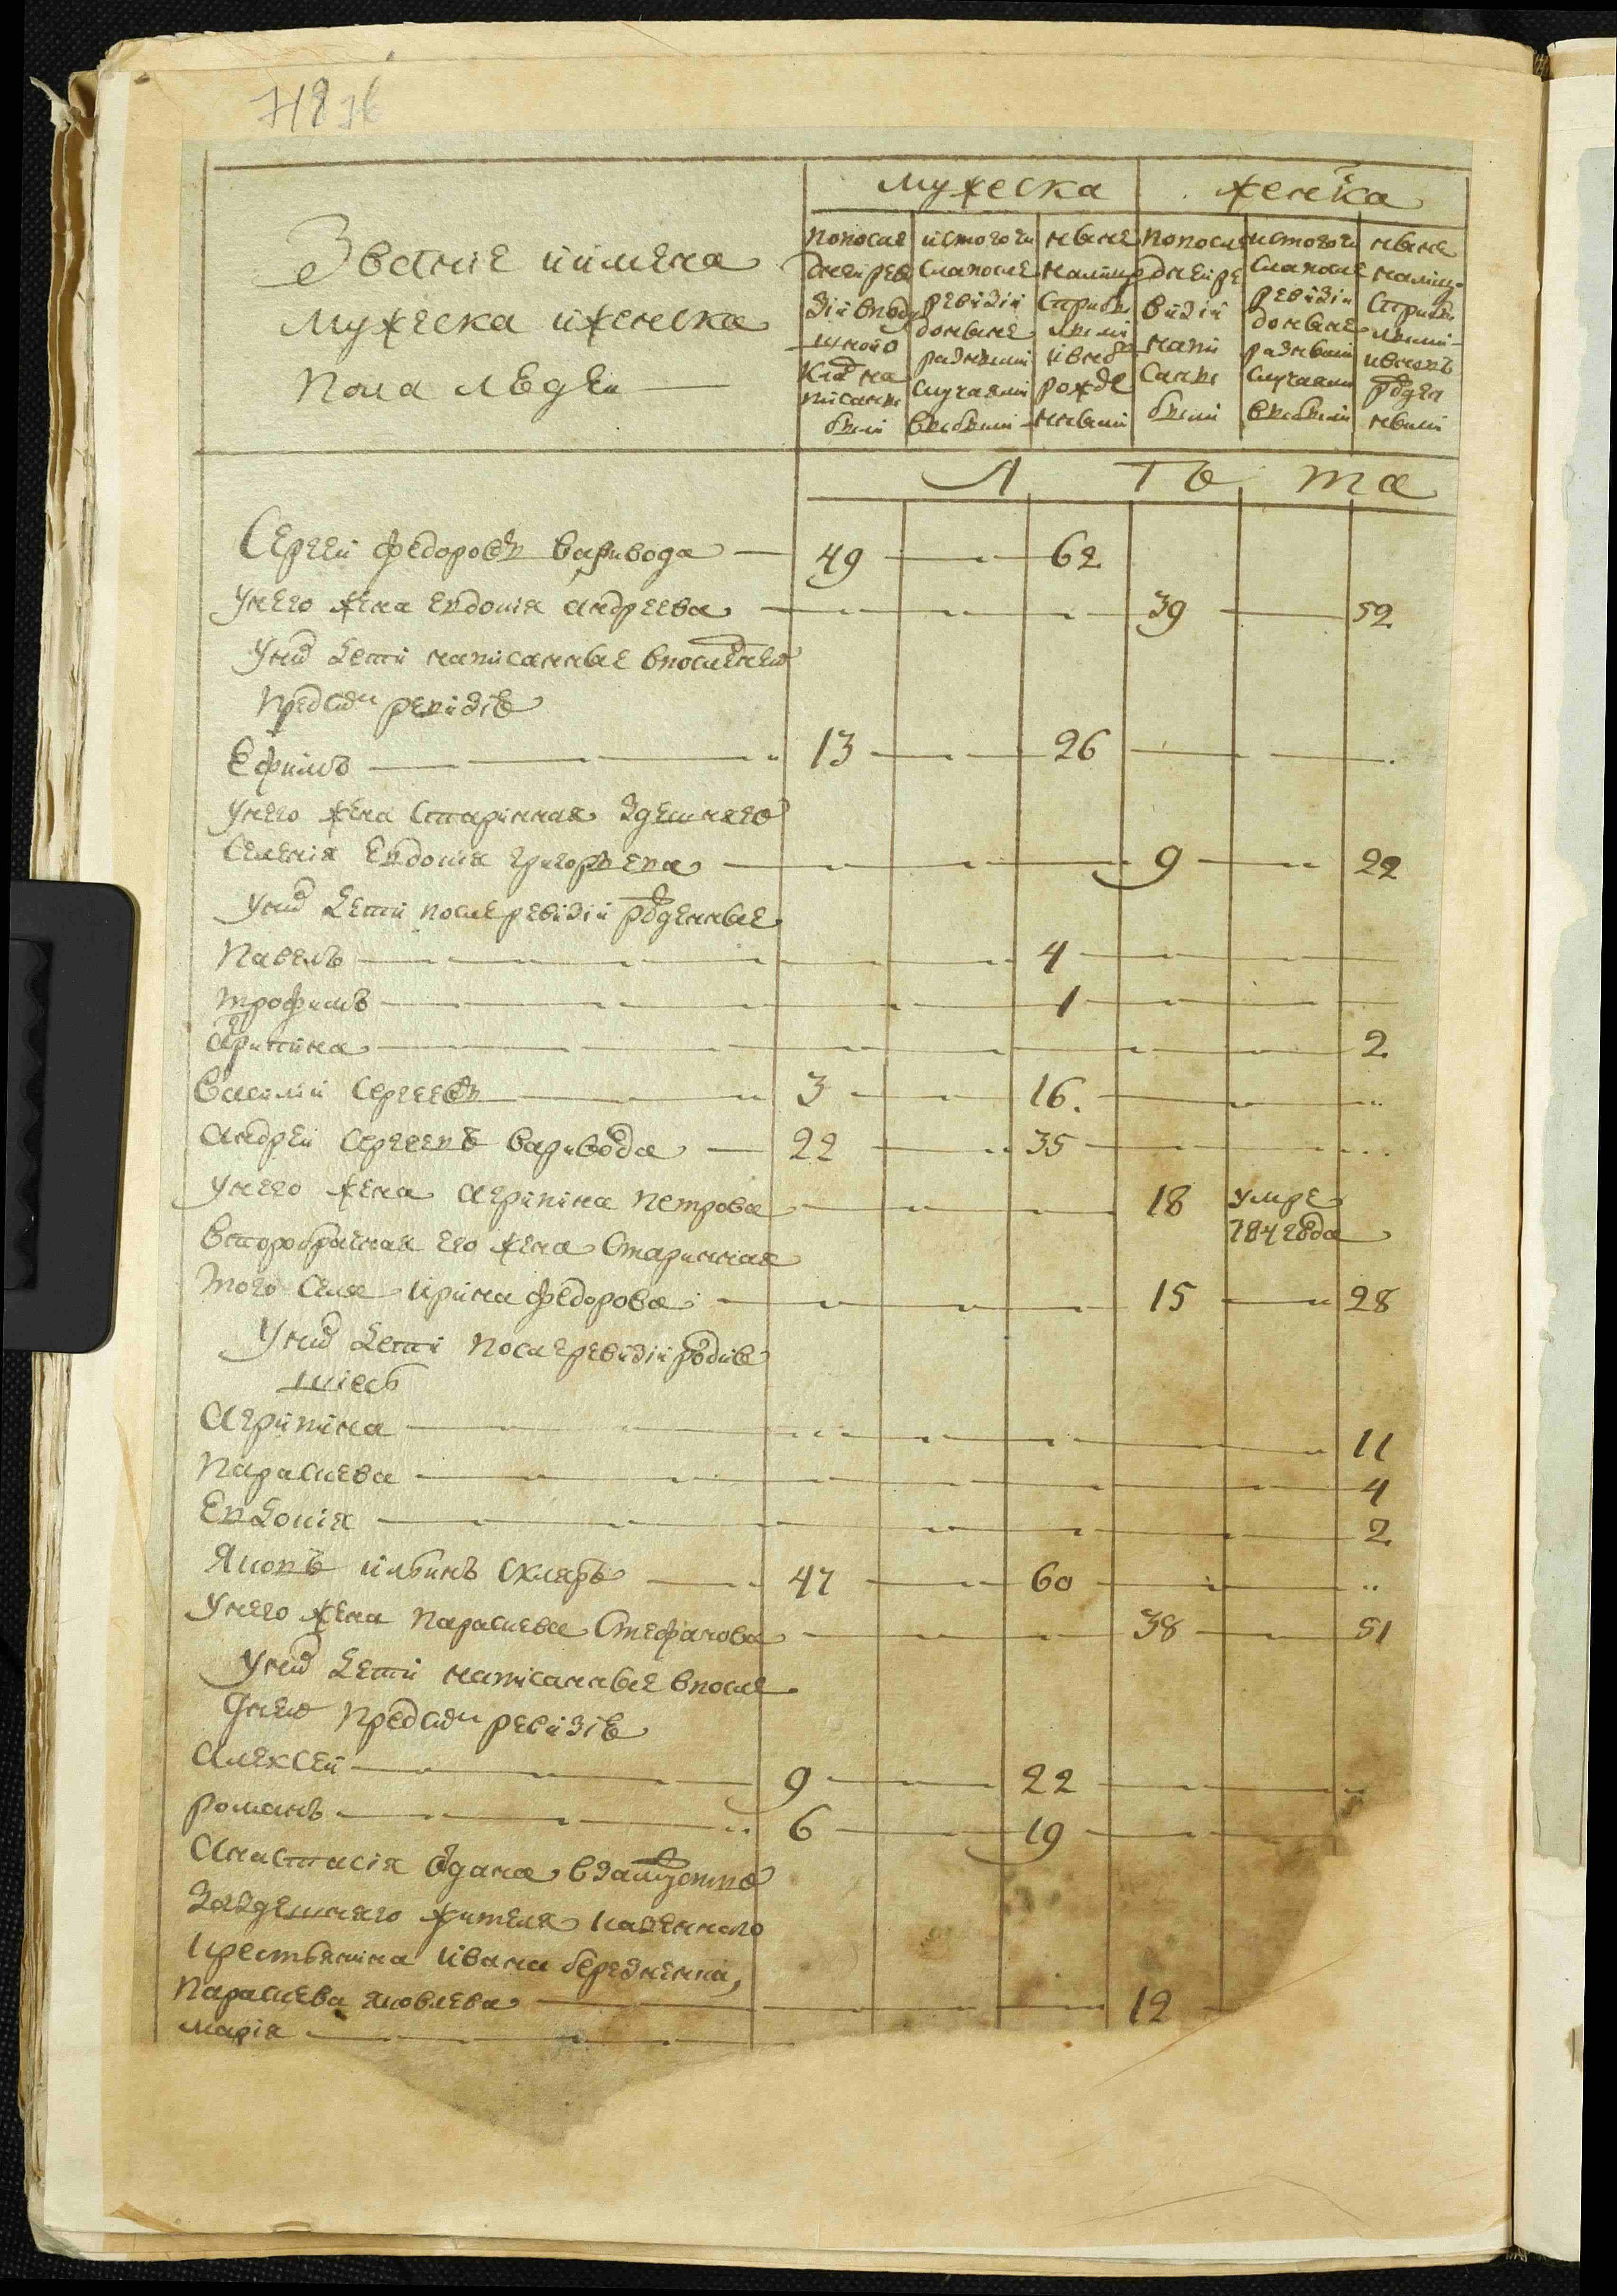 Мужеска женска
Звание и имена
мужеска и женска
пола людей
по последней ревизии в подушной оклад написаны были
ис того числа после ревизии до ныне разными случаями выбыли
ныне на лицо с прибылыми и вновь рожденными
по последней ревизии написаны были
ис того числа после ревизии до ныне разными случаями выбыли
ныне на лицо с прибылыми и вновь рожденными
Л Ѣ та
Сергей федоровъ варивода 49 62
у него жена евдокия андреева 39 52
у них дети написанные в последней
пред сим ревизіе
Ефимъ 13 26
у него жена старинная здешняго
селения Евдокия григорьева 9 22
у них дети после ревизіи рожденные
Павелъ 4
трофимъ 1
агрипина 2
василий Сергеевъ 3 16.
андрей сергеевъ варивода 22 35
у него жена агрипина петрова 18 умре
784 года
второбрачная его жена старинная
того села ирина федорова 15 28
у них дети после ревизіи родив
шіесь
агрипина 11
парасκева 4
Евдокия 2
Яковъ ильинъ скляръ 47 60
у него жена параскева стефанова 38 51
у них дети написанные в после
дней пред сим ревизіе
алексей 9 22
романъ 6 19
анастасія отдана в замужство
за здешняго жителя казенного
крестьянина ивана
параскева яковлева 12
марія